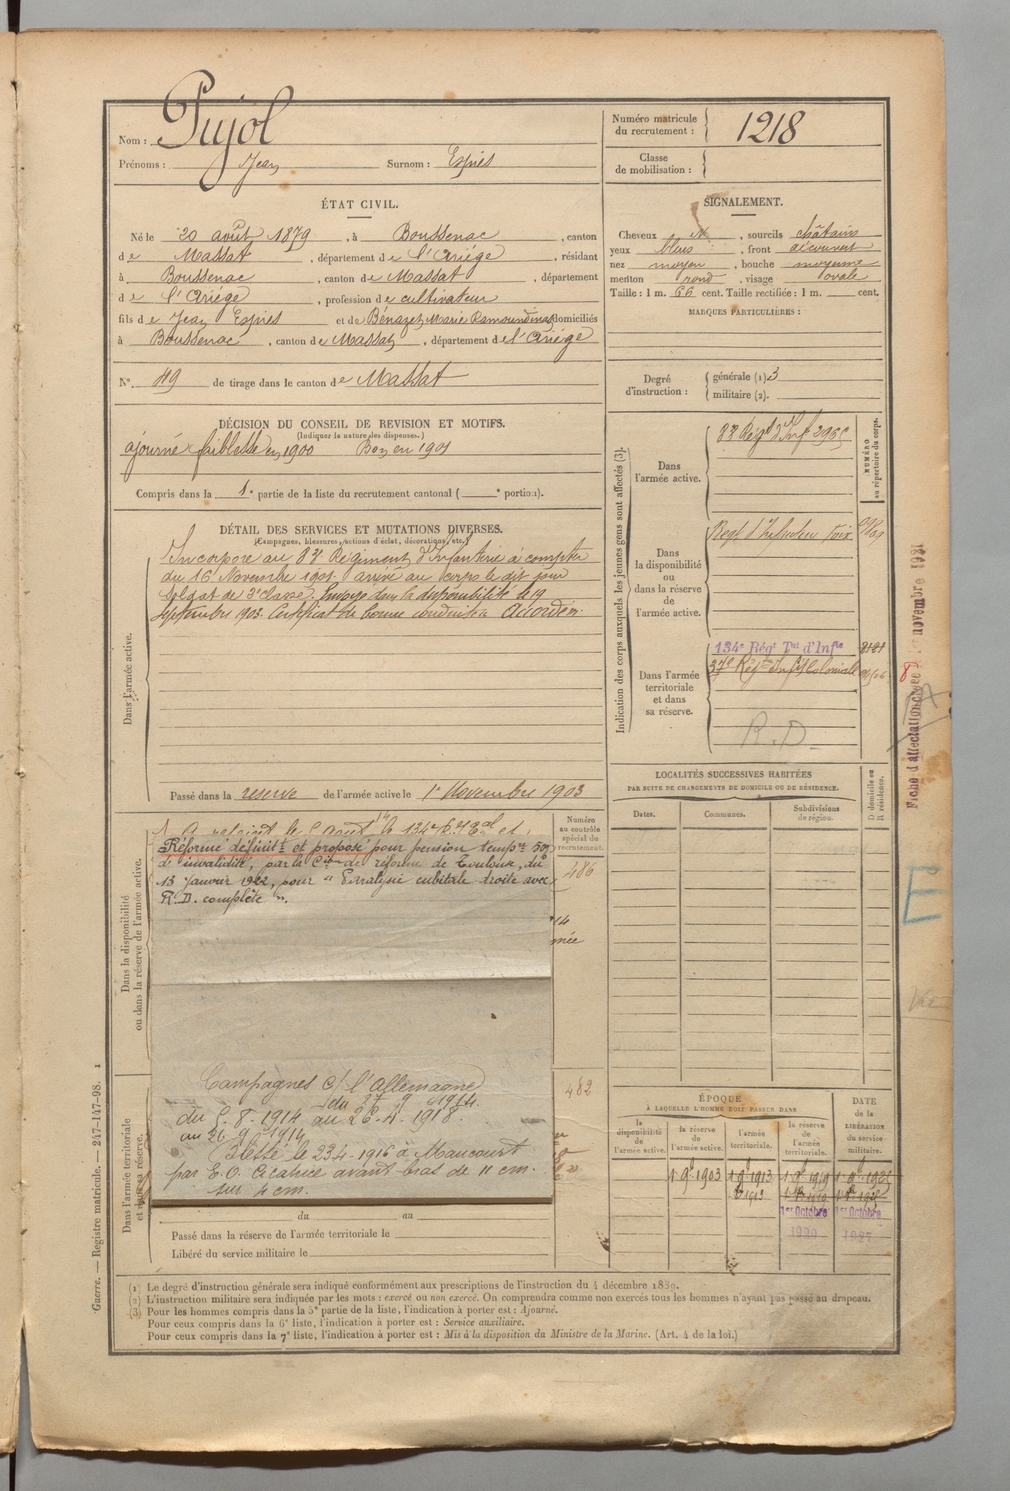 Nom : Pujol
Prénoms : Jean Surnom : Espiès
ÉTAT CIVIL.
Né le 20 août 1879, à Boussenac, canton
de Massat, département de l'Ariége, résidant
à Boussenac, canton de Massat, département
de l'Ariége, profession de cultivateur
fils de Jean Espiès et de Bénazet Marie Ramoundens domiciliés
à Boussenac, canton de Massat, département de l'Ariége
N° 49 de tirage dans le canton de Massat
DÉCISION DU CONSEIL DE REVISION ET MOTIFS.
(Indiquer la nature des dispenses.)
ajourné faiblesse en 1900 Bon en 1901
Compris dans la 1e partie de la liste du recrutement cantonal ( e portion).
DÉTAIL DES SERVICES ET MUTATIONS DIVERSES.
(Campagnes, blessures, actions d'éclat, décorations, etc.)
Dans l'armée active.
Incorporé au 83e Régiment d'Infanterie à compter
du 16 Novembre 1901. arrivé au corps le dit jour
Soldat de 2e classe. Envoyé dans la disponibilité le 19
Septembre 1903. Certificat de bonne conduite Accordé.
Passé dans la réserve de l'armée active le 1er Novembre 1903
Dans la disponibilité
ou dans la réserve de l'armée active.
Réformé définitt et proposé pour pension tempre 50%
d'invalidité, par la Cion de réforme de Toulouse, du
13 Janvier 1922, pour "Paralysie cubitale droite avec
R. D. complète".
Dans l'armée territoriale
et dans sa réserve.
Campagnes c/ l'Allemagne
du 27 9 1914
du 5-8-1914 au 26-4-1918
au 26-9-1914
Blessé le 23-4-1916 à Maucourt
par E. O. Cicatrice avant bras de 11 cm.
sur 4 cm.
du au
Passé dans la réserve de l'armée territoriale le
Libéré du service militaire le
Numéro
au contrôle
spécial du
recrutement.
486
482
Numéro matricule
du recrutement : 1218
Classe
de mobilisation :
SIGNALEMENT.
Cheveux et, sourcils châtains
yeux bleus, front découvert
nez moyen, bouche moyenne
menton rond, visage ovale
Taille : 1 m. 66 cent. Taille rectifiée : 1 m. cent.
MARQUES PARTICULIÈRES :
Degré
d'instruction :
générale (1) 3
militaire (2).
Indication des corps auxquels les jeunes gens sont affectés (3).
NUMÉRO
au répertoire du corps.
Dans
l'armée active.
83e Régt d'Inf
Dans
la disponibilité
ou
dans la réserve
de
l'armée active.
Régt d'Infanterie Foix
Dans l'armée
territoriale
et dans
sa réserve.
134e Régt Tal d'Infie
37e Régt Infie Coloniale
R.D.
LOCALITÉS SUCCESSIVES HABITÉES
PAR SUITE DE CHANGEMENTS DE DOMICILE OU DE RÉSIDENCE.
Dates.
Communes.
Subdivisions
de région.
D domicile ou
R résidence.
ÉPOQUE
À LAQUELLE L'HOMME DOIT PASSER DANS
la
disponibilité
de
l'armée active.
la réserve
de
l'armée active.
l'armée
territoriale.
la réserve
de
l'armée
territoriale.
DATE
de la
LIBÉRATION
du service
militaire.
1 9bre 1903
1 9bre 1913
1er Octobre
1er Octobre
Fiche d'affectation
novembre 1931
E
Guerre. — Registre matricule. — 247-147-98. 1
(1) Le degré d'instruction générale sera indiqué conformément aux prescriptions de l'instruction du 4 décembre 1889.
(2) L'instruction militaire sera indiquée par les mots : exercé ou non exercé. On comprendra comme non exercés tous les hommes n'ayant pas passé au drapeau.
(3) Pour les hommes compris dans la 5e partie de la liste, l'indication à porter est : Ajourné.
Pour ceux compris dans la 6e liste, l'indication à porter est : Service auxiliaire.
Pour ceux compris dans la 7e liste, l'indication à porter est : Mis à la disposition du Ministre de la Marine. (Art. 4 de la loi.)